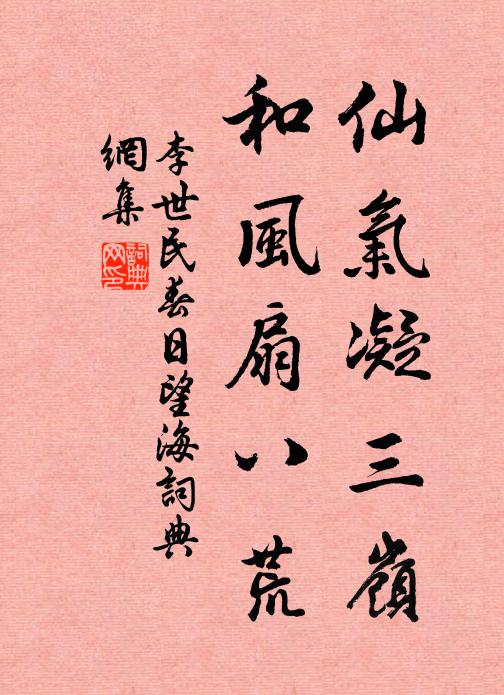 仙氣凝三嶺
和風扇八荒
李世民春日望海詞典
網集
詞典
网印